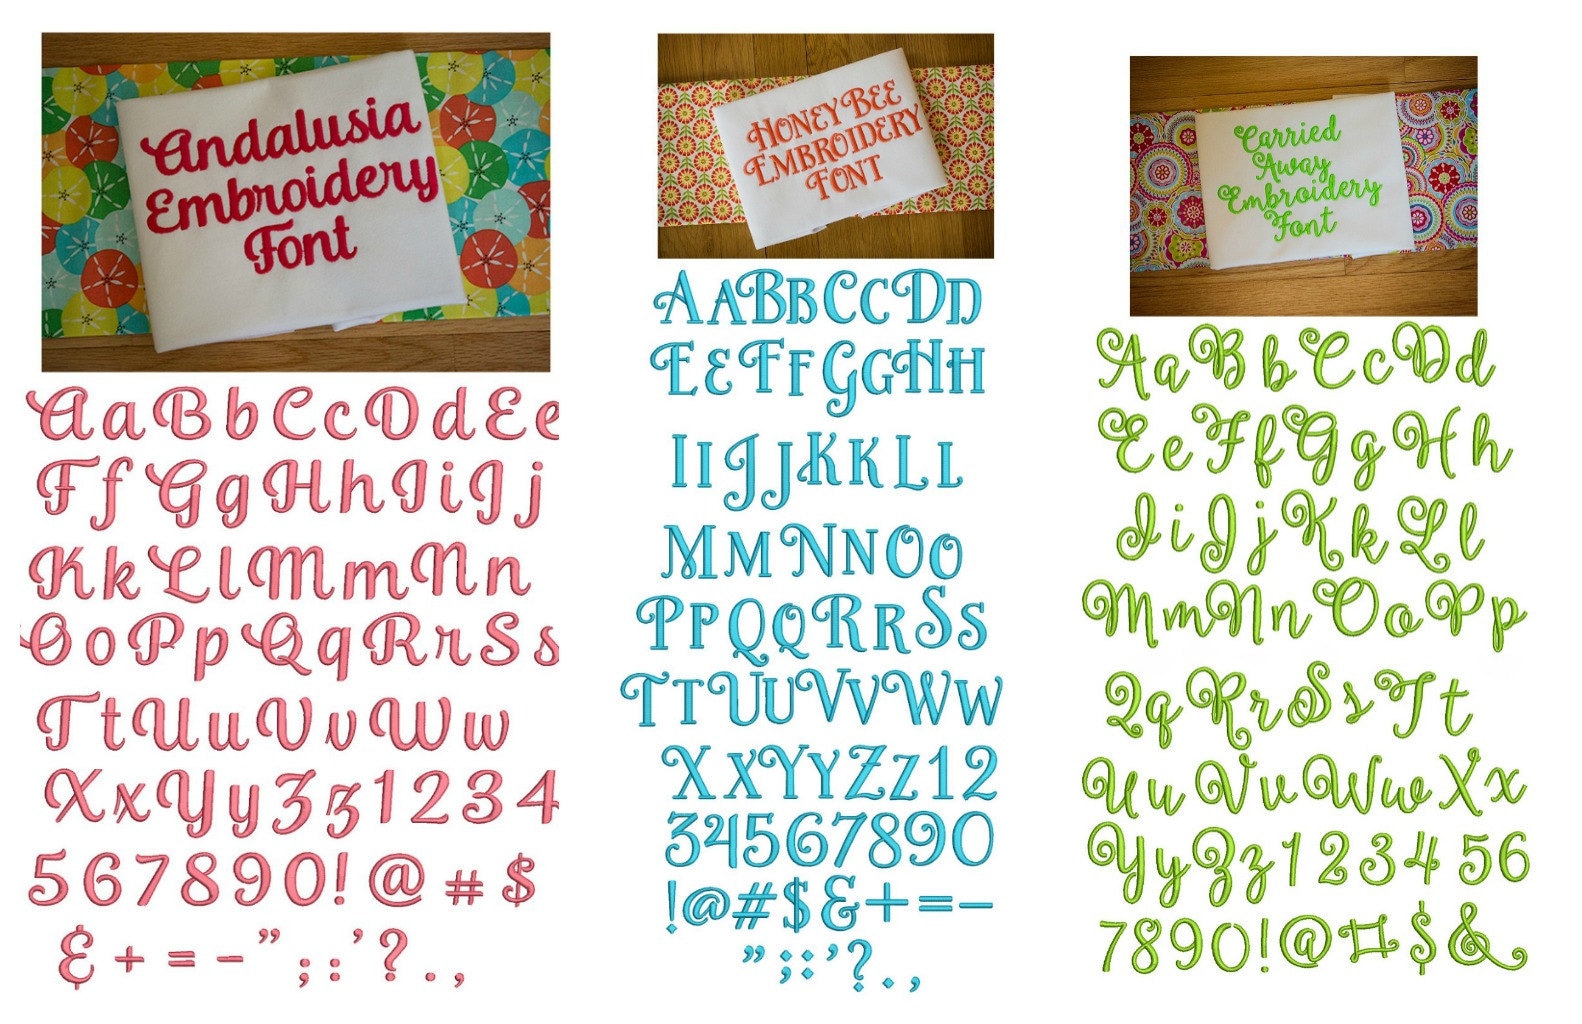 Andalusia
Embroidery
Font
AaBbCcDdEe
FfGgHhIiJj
KkLlMmNn
OoPpQqRrSs
TtUuVvWw
XxYyZz1234
567890!@#$
&+=-”;:’?.,
HONEY BEE
EMBROIDERY
FONT
AABBCCDD
EEFFGGHH
IIJJKKLL
MMNNOO
PPQQRRSS
TTUUVVWW
XXYYZZ12
34567890
!@#$&+=-
”;:’?.,
Carried
Away
Embroidery
Font
AaBbCcDd
EeFfGgHh
IiJjKkLl
MmNnOoPp
QqRrSsTt
UuVvWwXx
YyZz123456
7890!@#$&